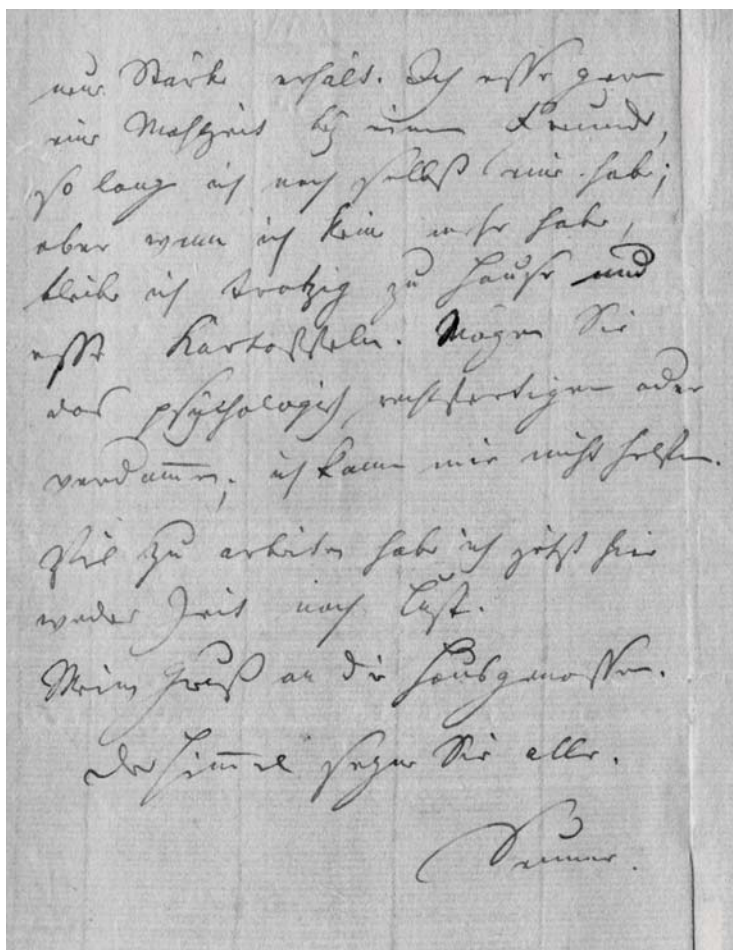 neue Stärke erhält. Ich esse gern
eine Mahlzeit bey einem Freunde,
so lang ich noch selbst eine habe;
aber wenn ich keine mehr habe,
bleibe ich trotzig zu Hause und
esse Kartoffeln. Mögen Sie
das psychologisch rechtfertigen oder
verdammen; ich kann mir nicht helfen.
Viel zu arbeiten habe ich jetzt hier
weder Zeit noch Lust.
Meinen Gruß an die Hausgenossen.
Der Himmel segne Sie alle.
Seume.